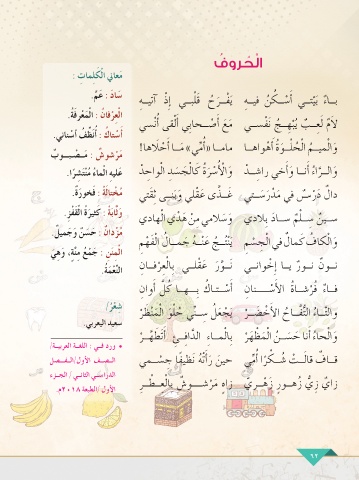 الْحُروفُ
باءٌ بَيْتي أَسْكُنُ فيهِ يَفْرَحُ قَلْبي إِذْ آتيهِ
لامٌ لُعِبٌ يُبْهِجُ نَفْسي مَعَ أَصْحابي أَلْقى أُنْسي
وَالْميمُ الْحُلْوَةُ أَهْواها ماما «أُمّي» مَا أَحْلاها!
وَالرّاءُ أَنا وَأَخي راشِدْ وَالْأُسْرَةُ كَالْجَسَدِ الْواحِدْ
دالٌ دَرْسٌ في مَدْرَسَتي غَذّى عَقْلي وَبَنى ثِقَتي
سينٌ سِلْمٌ سادَ بِلادي وَسَلامي مِنْ هَدْيِ الْهادي
وَالْكافُ كَمالٌ في الْجِسْمِ يَنْتُجُ عَنْهُ جَمالُ الْفَهْمِ
نونٌ نورٌ يا إِخْواني نَوَّرَ عَقْلي بِالْعِرْفانِ
فاءٌ فُرْشاةُ الْأَسْنانِ أَسْتاكُ بِها كُلَّ أَوانِ
وَالتّاءُ التُّفّاحُ الْأَخْضَرْ يَجْعَلُ سِنّي حُلْوَ الْمَنْظَرْ
وَالْحاءُ أَنا حَسَنُ الْمَظْهَرْ بِالْماءِ الدّافِئِ أَتَطَهَّرْ
قافٌ قالَتْ شُكْرًا أُمّي حينَ رَأَتْهُ نَظيفًا جِسْمي
زايٌ زِيُّ زُهورٍ زَهْري زاهٍ مَرْشوشٌ بِالْعِطْرِ
مَعاني الْكَلِماتِ :
سادَ : عَمَّ.
الْعِرْفانُ : الْمَعْرِفَةُ.
أَسْتاكُ : أُنَظِّفُ أَسْناني.
مَرْشوشٌ : مَصْبوبٌ
عَلَيهِ الْماءُ مُنْتَشِرًا.
مُخْتالَةٌ : فَخورَةٌ.
وَثّابَةٌ : كَثيرَةُ الْقَفْزِ.
مُزْدانٌ : حَسَنٌ وَجَميلٌ.
الْمِنَنِ : جَمْعُ مِنَّةٍ، وَهِيَ
النِّعْمَةُ.
شِعْرُ/
سعيد اليعربي.
• ورد في : اللغة العربية/
الصف الأول/الفصل
الدراسي الثاني/ الجزء
الأول/ الطبعة ٢٠١٨م.
٦٢